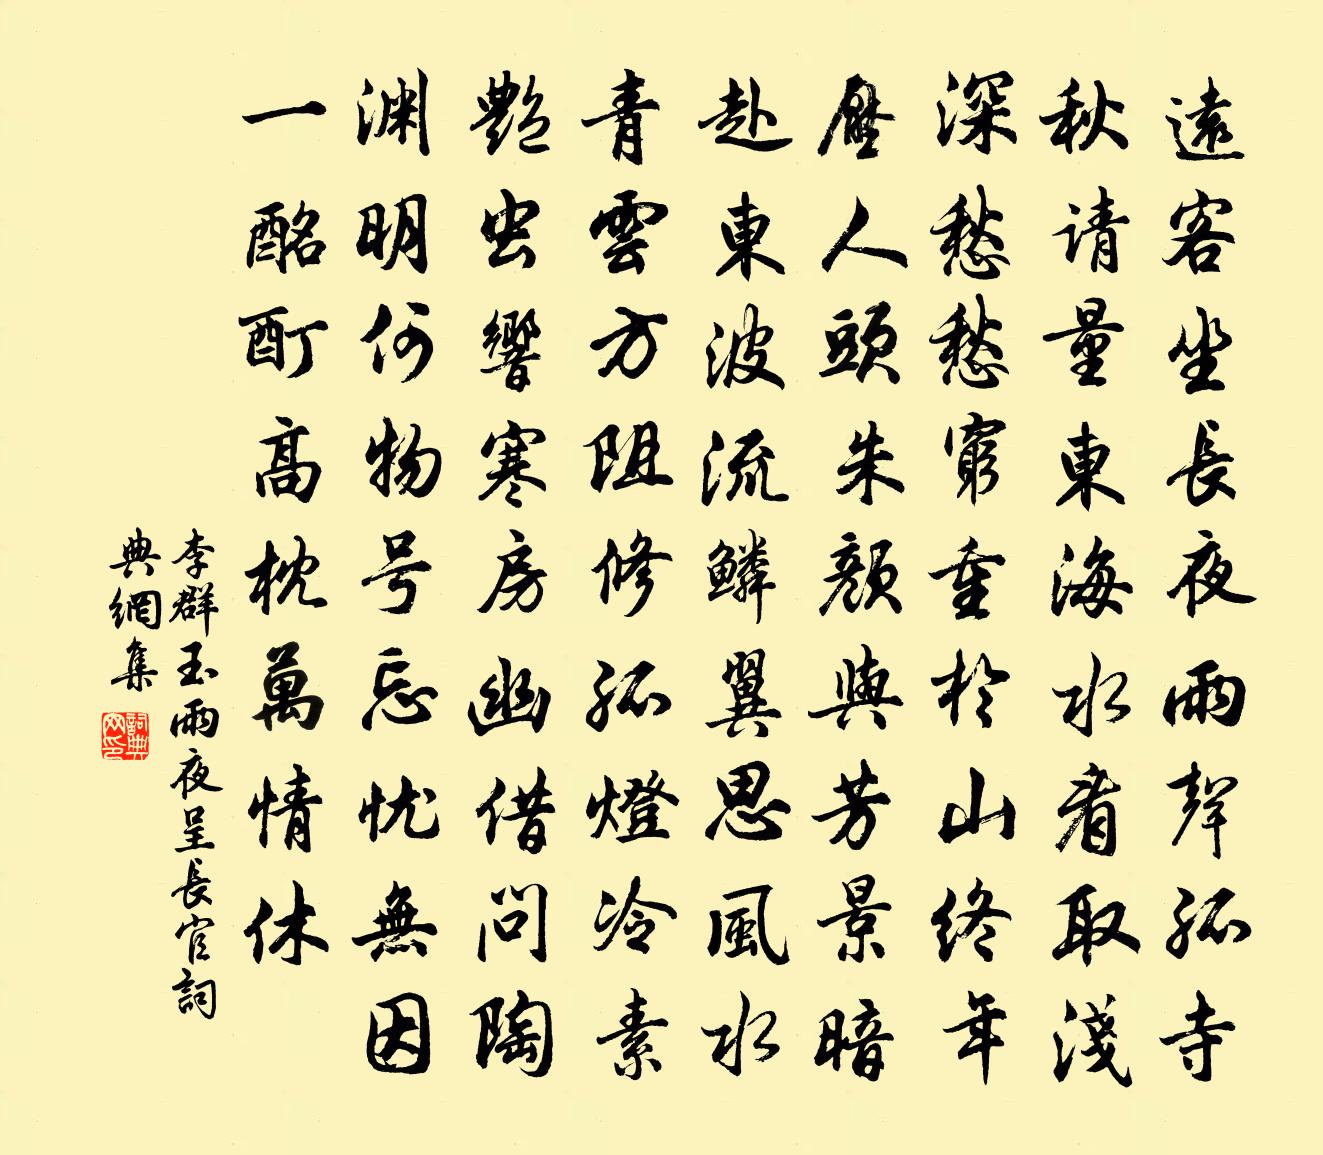 遠客坐長夜雨聲孤寺
秋请量東海水看取淺
深愁愁窮重於山終年
壓人頭朱顏與芳景暗
赴東波流鱗翼思風水
青雲方阻修孤燈冷素
艷虫響寒房幽借問陶
渊明何物号忘忧無因
一酩酊高枕萬情休
李群玉雨夜呈長官詞
典網集
詞典网印